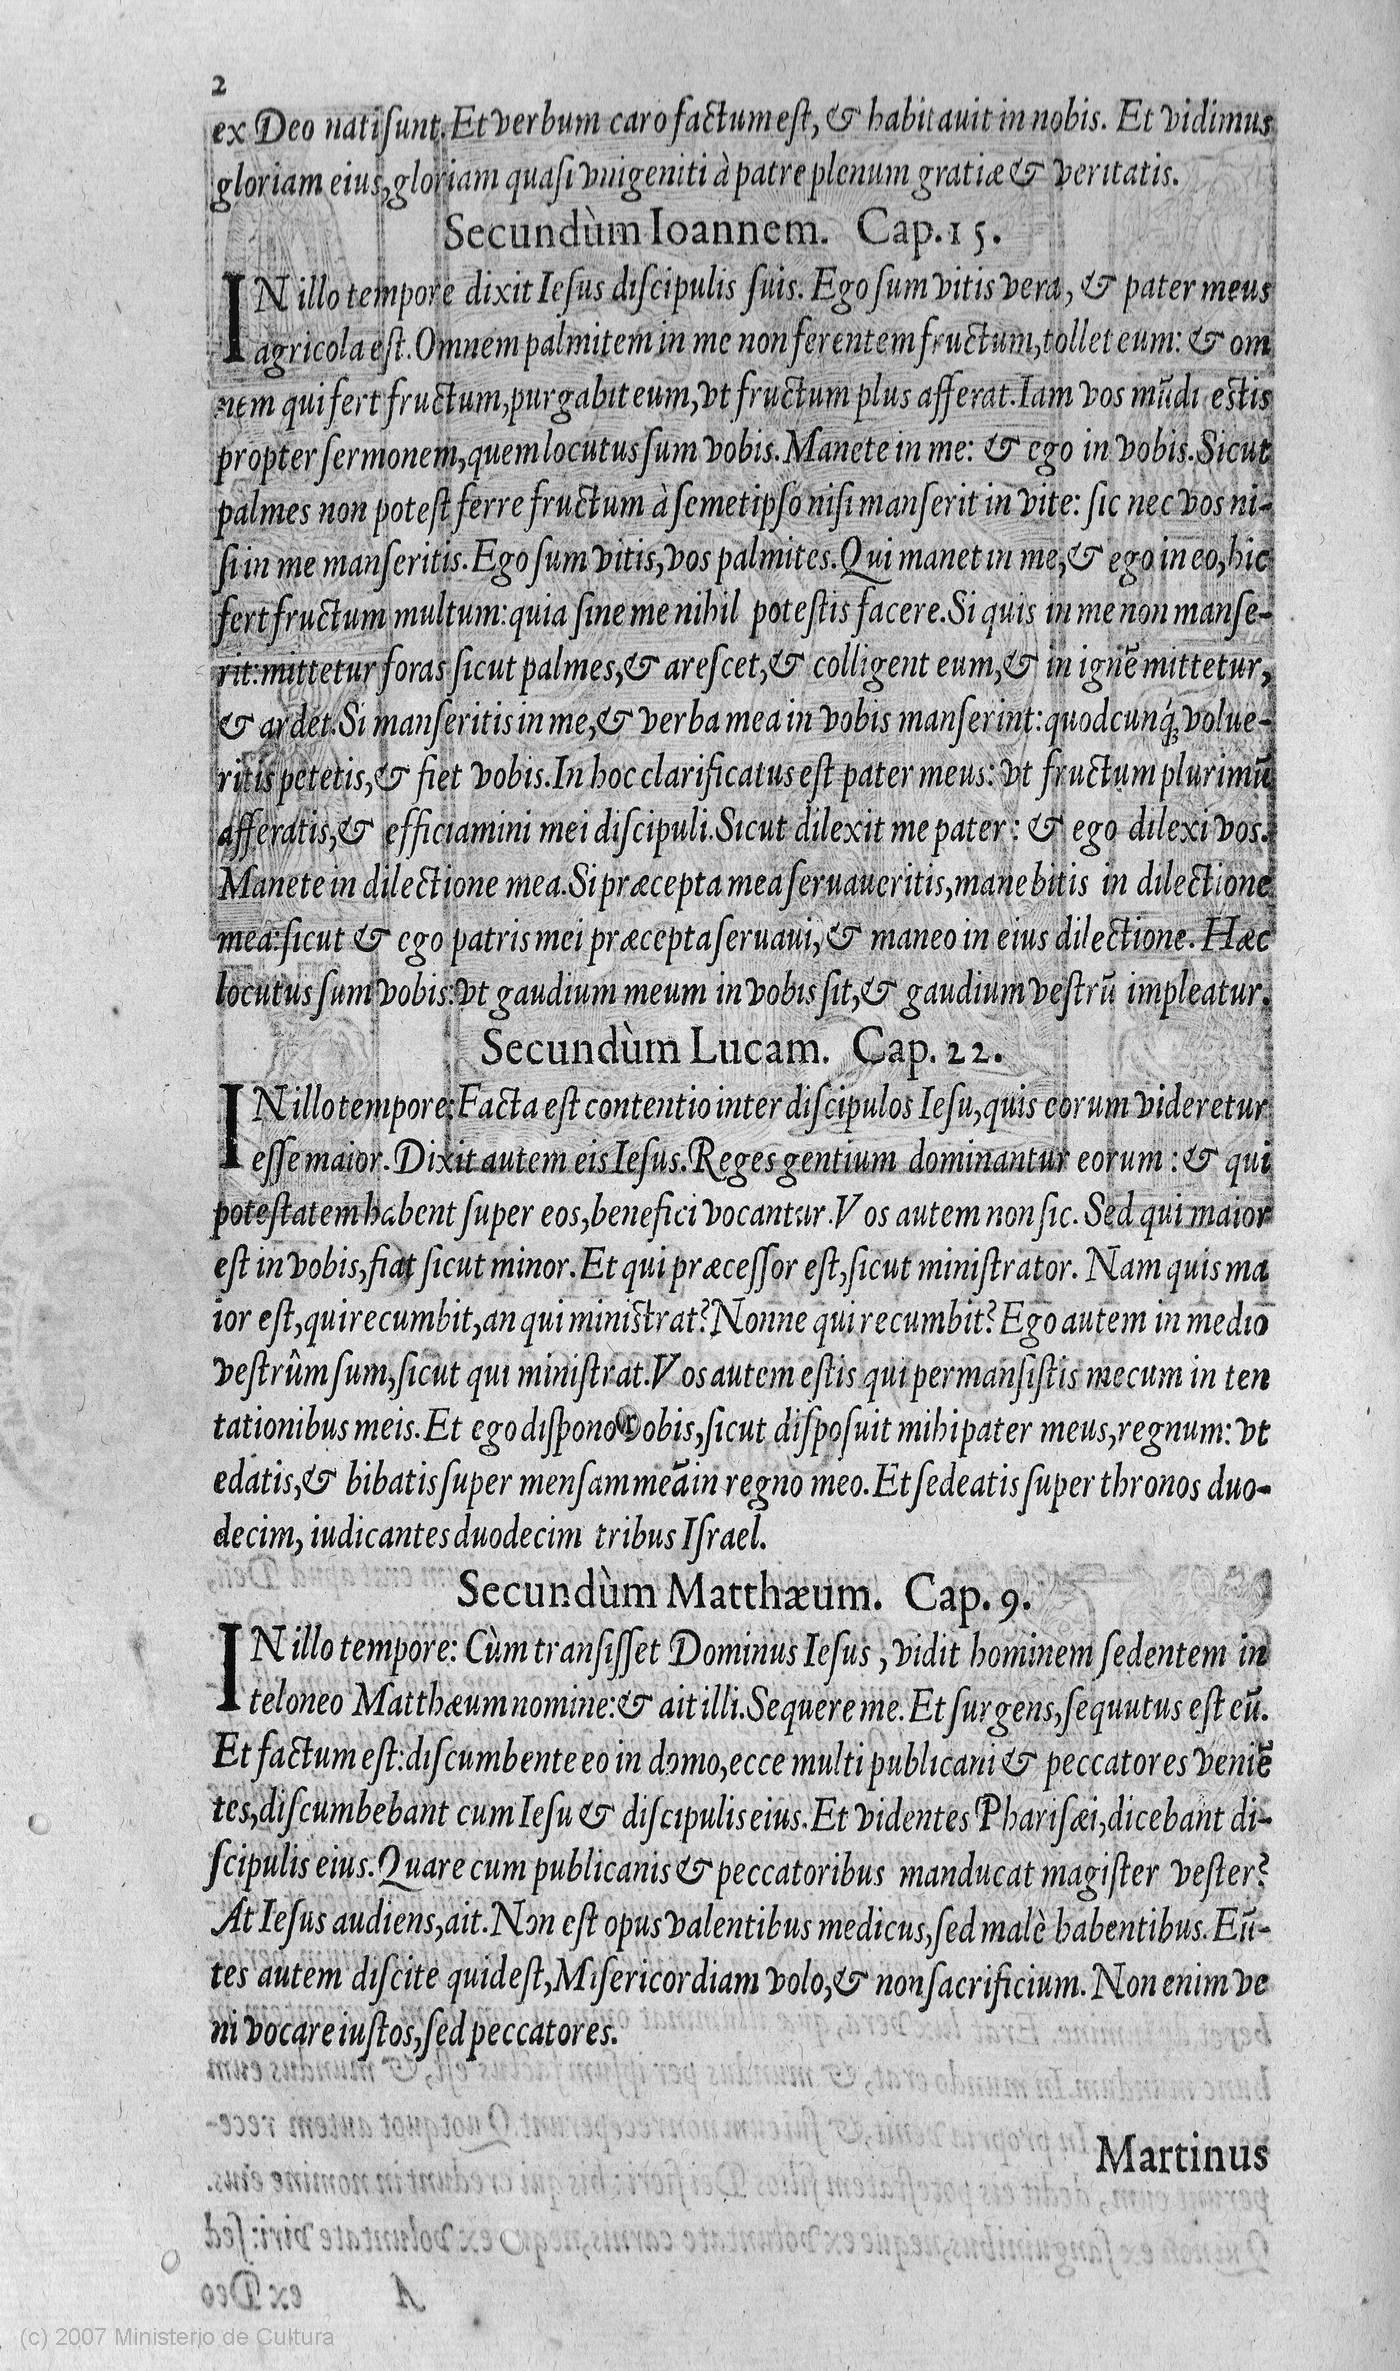 2
ex Deo nati sunt. Et verbum caro factum est, & habitauit in nobis. Et vidimus
gloriam eius, gloriam quasi vnigeniti à patre plenum gratiæ & veritatis.
Secundùm Ioannem. Cap. 15.
IN illo tempore dixit Iesus discipulis suis. Ego sum vitis vera, & pater meus
agricola est. Omnem palmitem in me non ferentem fructum, tollet eum: & om
nem qui fert fructum, purgabit eum, vt fructum plus afferat. Iam vos mūdi estis
propter sermonem, quem locutus sum vobis. Manete in me: & ego in vobis. Sicut
palmes non potest ferre fructum à semetipso nisi manserit in vite: sic nec vos ni-
si in me manseritis. Ego sum vitis, vos palmites. Qui manet in me, & ego in eo, hic
fert fructum multum: quia sine me nihil potestis facere. Si quis in me non manse-
rit: mittetur foras sicut palmes, & arescet, & colligent eum, & in ignē mittetur,
& ardet. Si manseritis in me, & verba mea in vobis manserint: quodcunq́; volue-
ritis petetis, & fiet vobis. In hoc clarificatus est pater meus: vt fructum plurimū
afferatis, & efficiamini mei discipuli. Sicut dilexit me pater: & ego dilexi vos.
Manete in dilectione mea. Si præcepta mea seruaueritis, manebitis in dilectione
mea: sicut & ego patris mei præcepta seruaui, & maneo in eius dilectione. Hæc
locutus sum vobis: vt gaudium meum in vobis sit, & gaudium vestrū impleatur.
Secundùm Lucam. Cap. 22.
IN illo tempore: Facta est contentio inter discipulos Iesu, quis eorum videretur
esse maior. Dixit autem eis Iesus. Reges gentium dominantur eorum: & qui
potestatem habent super eos, benefici vocantur. Vos autem non sic. Sed qui maior
est in vobis, fiat sicut minor. Et qui præcessor est, sicut ministrator. Nam quis ma
ior est, qui recumbit, an qui ministrat? Nonne qui recumbit? Ego autem in medio
vestrûm sum, sicut qui ministrat. Vos autem estis qui permansistis mecum in ten
tationibus meis. Et ego dispono vobis, sicut disposuit mihi pater meus, regnum: vt
edatis, & bibatis super mensam meā in regno meo. Et sedeatis super thronos duo-
decim, iudicantes duodecim tribus Israel.
Secundùm Matthæum. Cap. 9.
IN illo tempore: Cùm transisset Dominus Iesus, vidit hominem sedentem in
teloneo Matthæum nomine: & ait illi. Sequere me. Et surgens, sequutus est eū.
Et factum est: discumbente eo in domo, ecce multi publicani & peccatores veniē
tes, discumbebant cum Iesu & discipulis eius. Et videntes Pharisæi, dicebant di-
scipulis eius. Quare cum publicanis & peccatoribus manducat magister vester?
At Iesus audiens, ait. Non est opus valentibus medicus, sed malè habentibus. Eū-
tes autem discite quid est, Misericordiam volo, & non sacrificium. Non enim ve
ni vocare iustos, sed peccatores.
Martinus
(c) 2007 Ministerio de Cultura